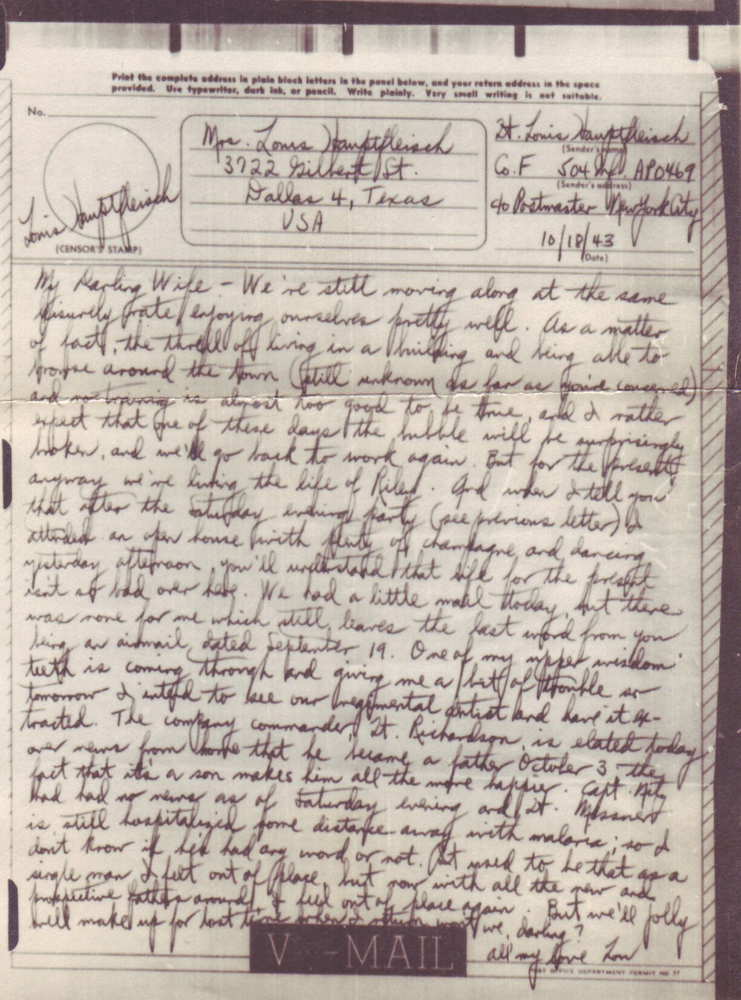 Print the complete address in plain block letters in the panel below, and your return address in the space
provided. Use typewriter, dark ink, or pencil. Write plainly. Very small writing is not suitable.
No.
Mrs. Louis Hauptfleisch
3722 Gilbert St.
Dallas 4, Texas
USA
Lt. Louis Hauptfleisch
(Sender's name)
Co. F 504 Inf. APO 469
(Sender's address)
c/o Postmaster New York City
10/18/43
(Date)
Louis Hauptfleisch
(CENSOR'S STAMP)
My Darling Wife - We're still moving along at the same
leisurely rate enjoying ourselves pretty well. As a matter
of fact, the thrill of living in a building and being able to
browse around the town (still unknown as far as you're concerned)
and no training is almost too good to be true, and I rather
expect that one of these days the bubble will be surprisingly
broken, and we'll go back to work again. But for the present
anyway we're living the life of Riley. And when I tell you
that after the Saturday evening party (see previous letter) I
attended an open house with plenty of champagne and dancing
yesterday afternoon, you'll understand that life for the present
isn't so bad over here. We had a little mail today, but there
was none for me which still leaves the last word from you
being an airmail dated September 19. One of my upper wisdom
teeth is coming through and giving me a bit of trouble so
tomorrow I intend to see our regimental dentist and have it ex-
tracted. The company commander, Lt. Richardson, is elated today
over news from home that he became a father October 3 - the
fact that it's a son makes him all the more happier. Capt.
had had no news as of Saturday evening and Lt.
is still hospitalized some distance away with malaria; so I
don't know if he's had any word or not. It used to be that as a
single man I felt out of place, but now with all the new and
prospective fathers around, I feel out of place again. But we'll jolly
well make up for lost time when I return won't we, darling?
All my love Lou
V - MAIL
POST OFFICE DEPARTMENT PERMIT NO. 17